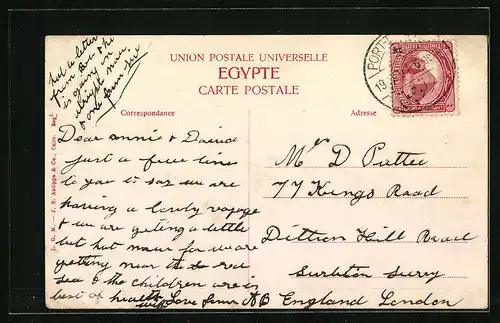 had a letter
from Bro &
is going on
alright now
& one from Sue
UNION POSTALE UNIVERSELLE
EGYPTE
CARTE POSTALE
PORT
19
Correspondance
Adresse
Dear Annie & David
just a few lines
to you to say we are
having a lovly voyage
& we are geting a little
bit hot now for we are
getting near the red
sea & the children are in
best of health with Love from AB
Mrs D Puttee
77 Kings Road
Ditton Hill Road
Surbiton Surry
England London
L. G. M. — J. B. Autippa & Co., Cairo. Reg.